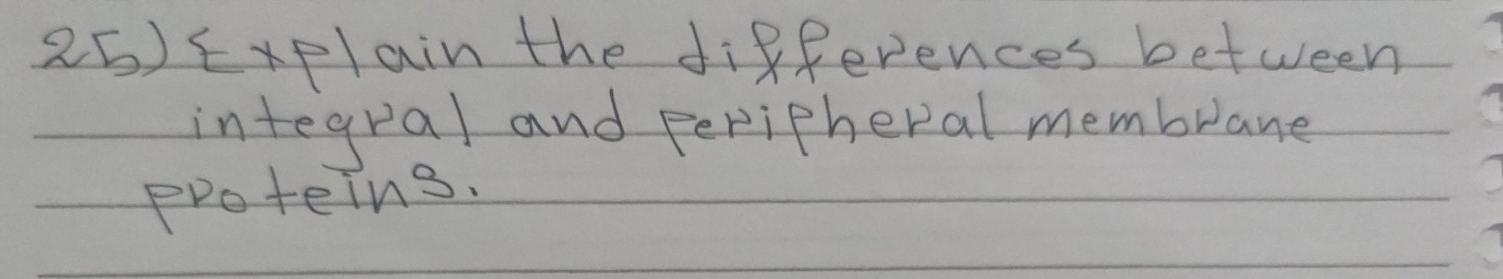 25) Explain the differences between
integral and peripheral membrane
proteins.